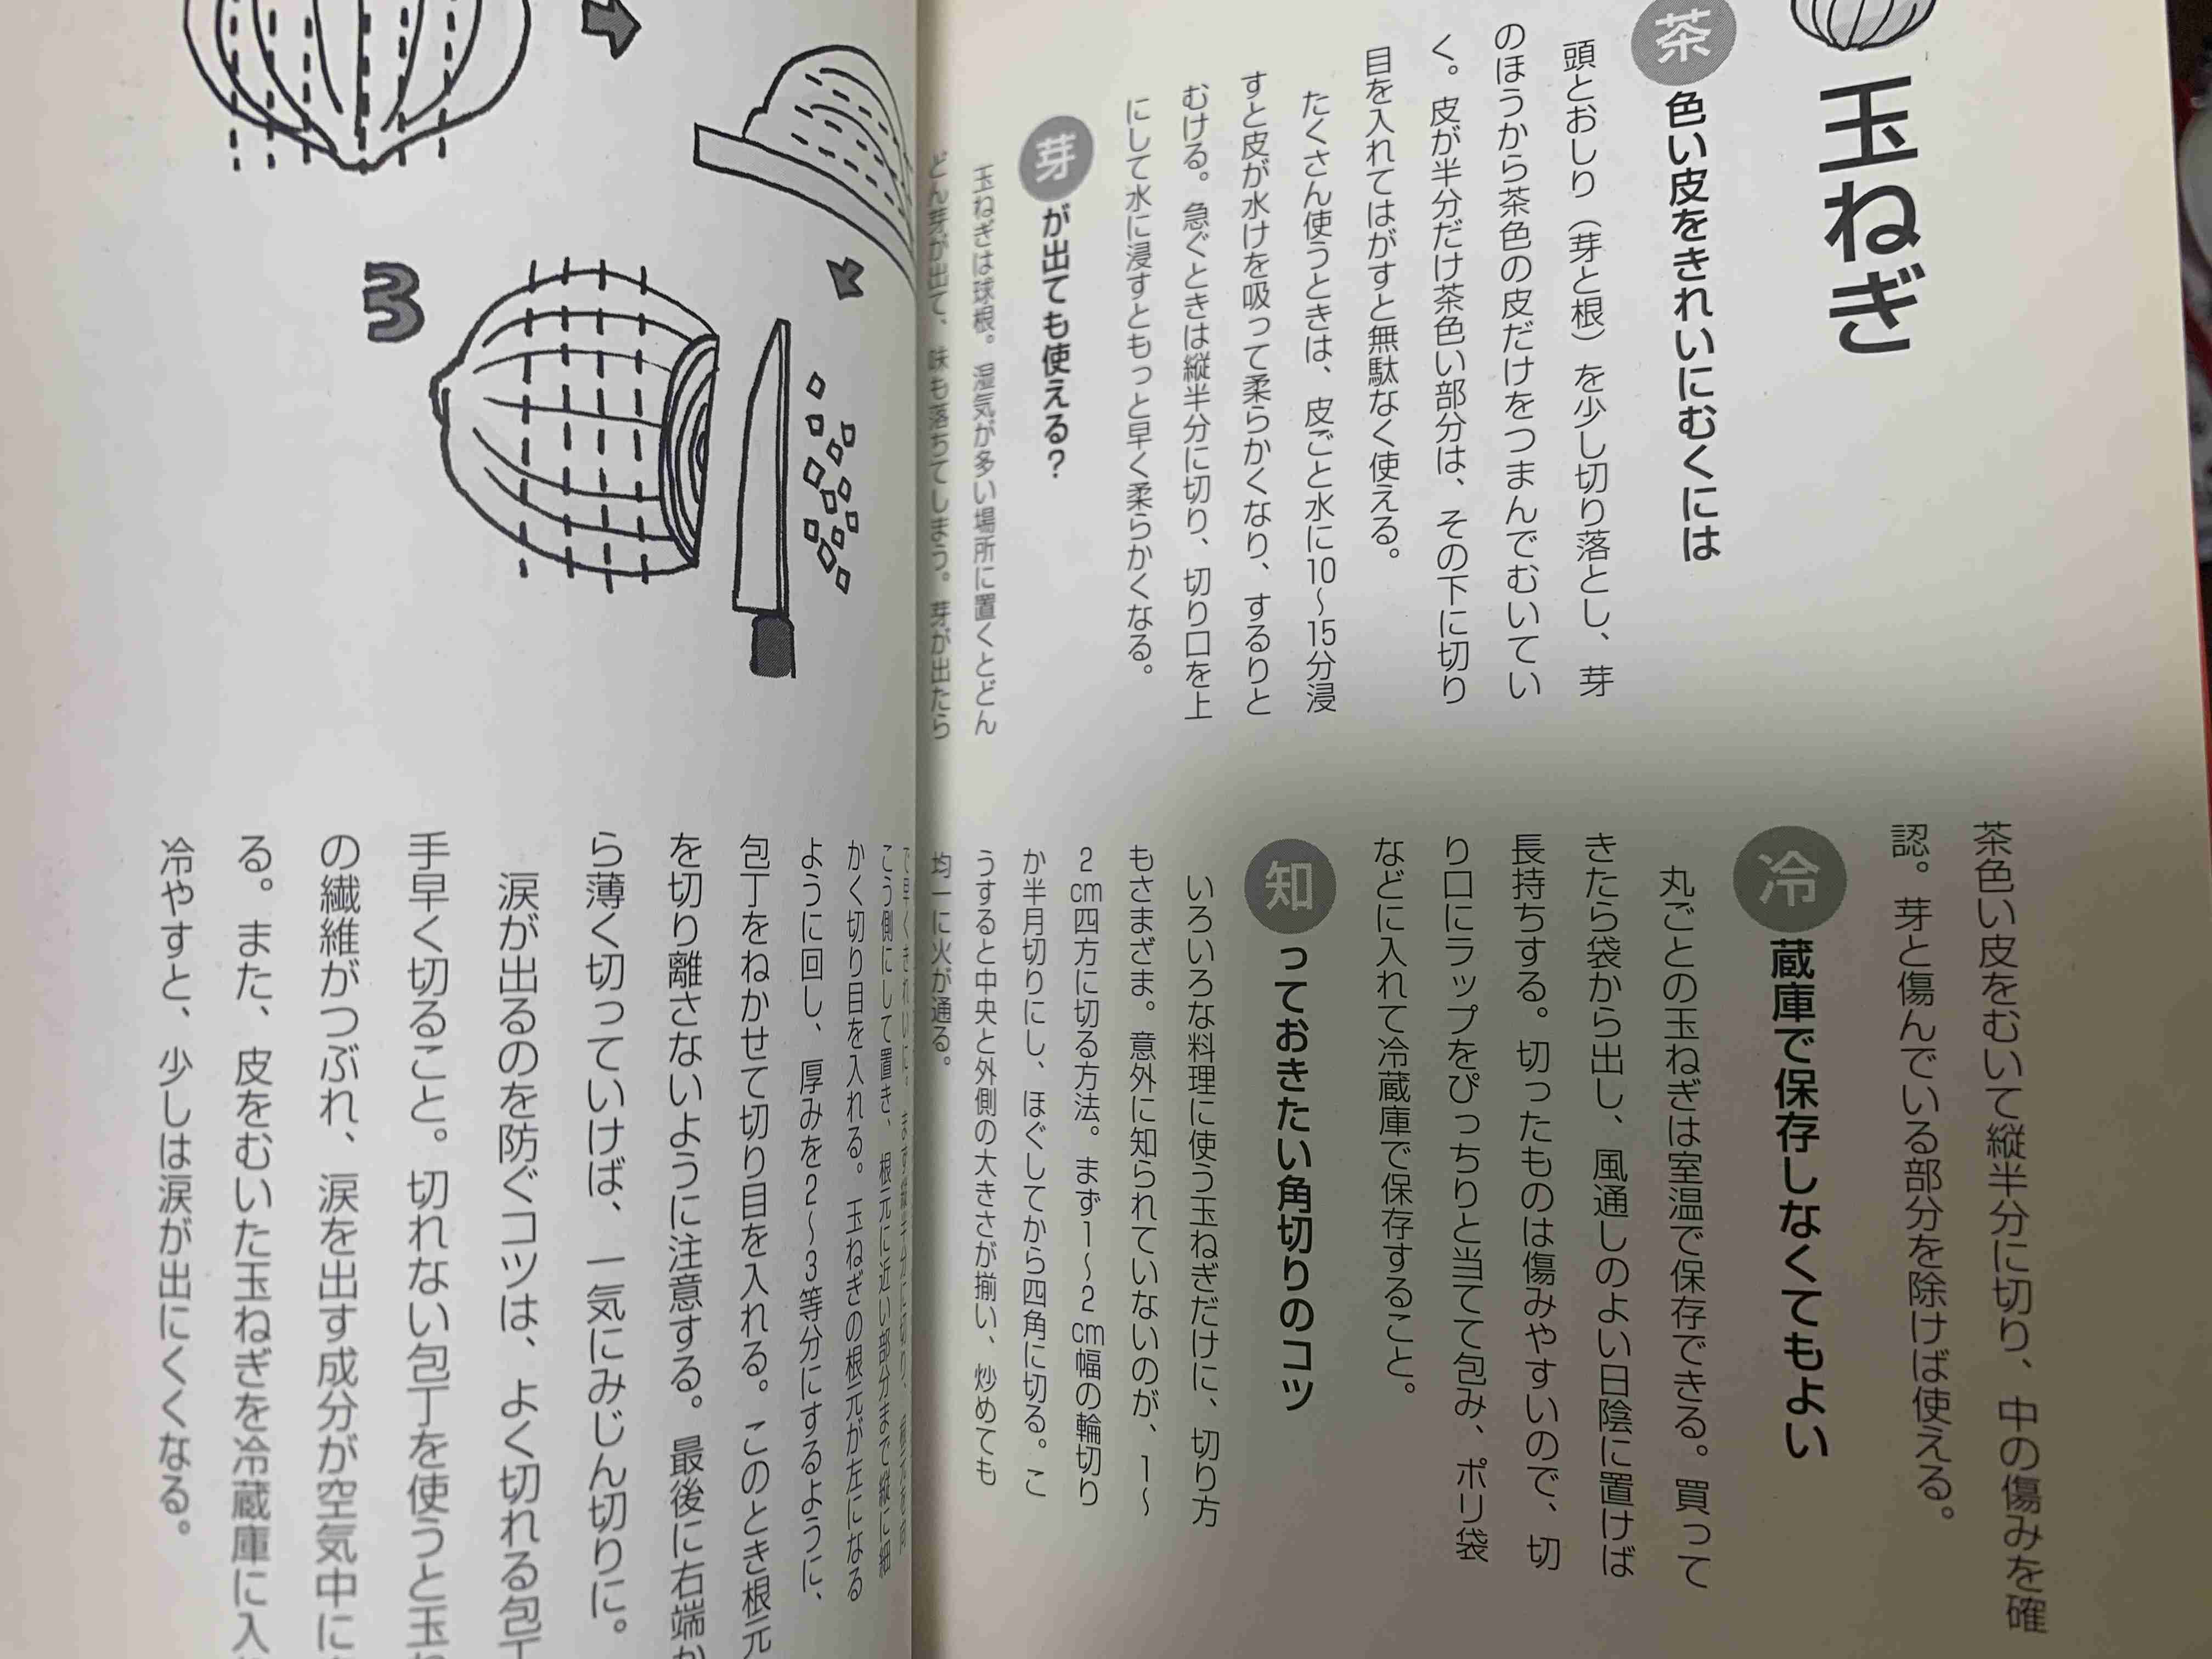 玉ねぎ
茶色い皮をきれいにむくには
頭とおしり（芽と根）を少し切り落とし、芽
のほうから茶色の皮だけをつまんでむいてい
く。皮が半分だけ茶色い部分は、その下に切り
目を入れてはがすと無駄なく使える。
たくさん使うときは、皮ごと水に10〜15分浸
すと皮が水けを吸って柔らかくなり、するりと
むける。急ぐときは縦半分に切り、切り口を上
にして水に浸すともっと早く柔らかくなる。
芽が出ても使える？
玉ねぎは球根。湿気が多い場所に置くとどん
どん芽が出て、味も落ちてしまう。芽が出たら
茶色い皮をむいて縦半分に切り、中の傷みを確
認。芽と傷んでいる部分を除けば使える。
冷蔵庫で保存しなくてもよい
丸ごとの玉ねぎは室温で保存できる。買って
きたら袋から出し、風通しのよい日陰に置けば
長持ちする。切ったものは傷みやすいので、切
り口にラップをぴっちりと当てて包み、ポリ袋
などに入れて冷蔵庫で保存すること。
知っておきたい角切りのコツ
いろいろな料理に使う玉ねぎだけに、切り方
もさまざま。意外に知られていないのが、1〜
2cm四方に切る方法。まず1〜2cm幅の輪切り
か半月切りにし、ほぐしてから四角に切る。こ
うすると中央と外側の大きさが揃い、炒めても
均一に火が通る。
3
こう側にして置き、根元に近い部分まで縦に細
かく切り目を入れる。玉ねぎの根元が左になる
ように回し、厚みを2〜3等分にするように、
包丁をねかせて切り目を入れる。このとき根元
を切り離さないように注意する。最後に右端か
ら薄く切っていけば、一気にみじん切りに。
涙が出るのを防ぐコツは、よく切れる包丁
手早く切ること。切れない包丁を使うと玉ね
の繊維がつぶれ、涙を出す成分が空気中に
る。また、皮をむいた玉ねぎを冷蔵庫に入
冷やすと、少しは涙が出にくくなる。